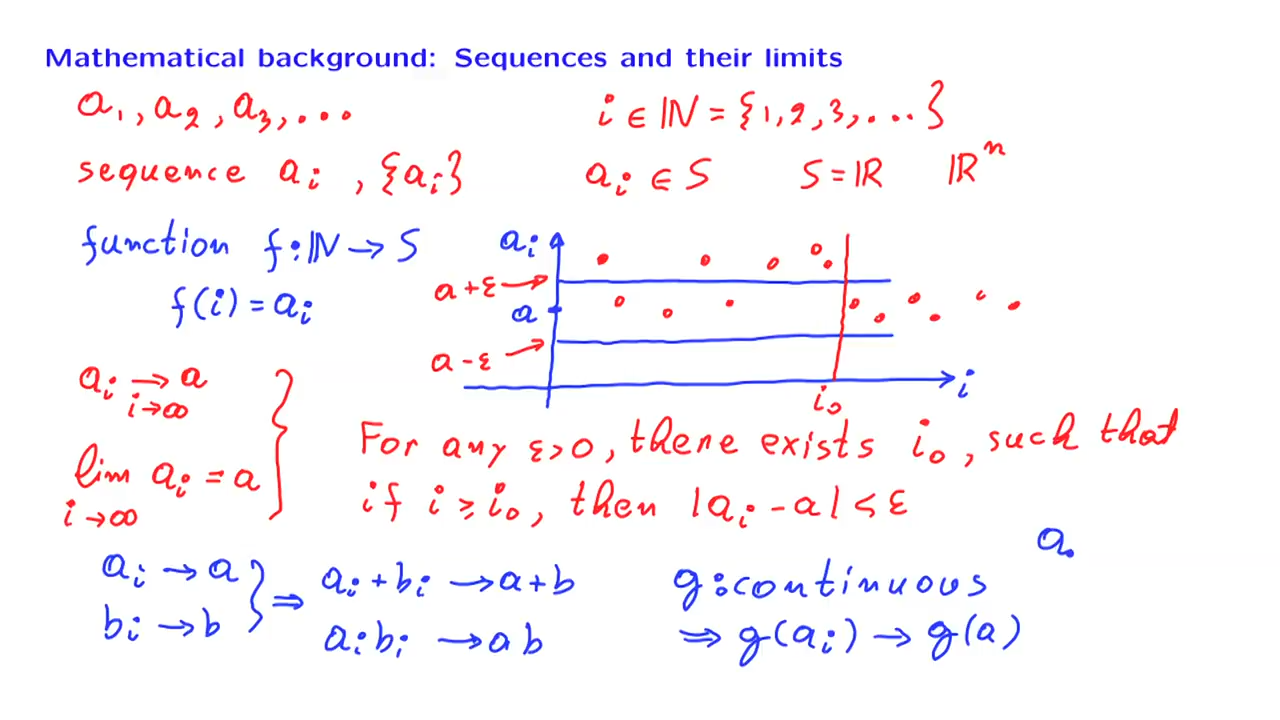 Mathematical background: Sequences and their limits
a₁, a₂, a₃, ...
i ∈ ℕ = {1, 2, 3, ...}
sequence aᵢ , {aᵢ}
aᵢ ∈ S S = ℝ ℝⁿ
function f : ℕ → S
f(i) = aᵢ
aᵢ
a+ε
a
a-ε
i₀
i
aᵢ → a
i→∞
lim aᵢ = a
i→∞
For any ε>0, there exists i₀, such that
if i ≥ i₀, then |aᵢ - a| < ε
aᵢ → a
bᵢ → b
⇒
aᵢ + bᵢ → a + b
aᵢbᵢ → ab
g : continuous
⇒ g(aᵢ) → g(a)
a